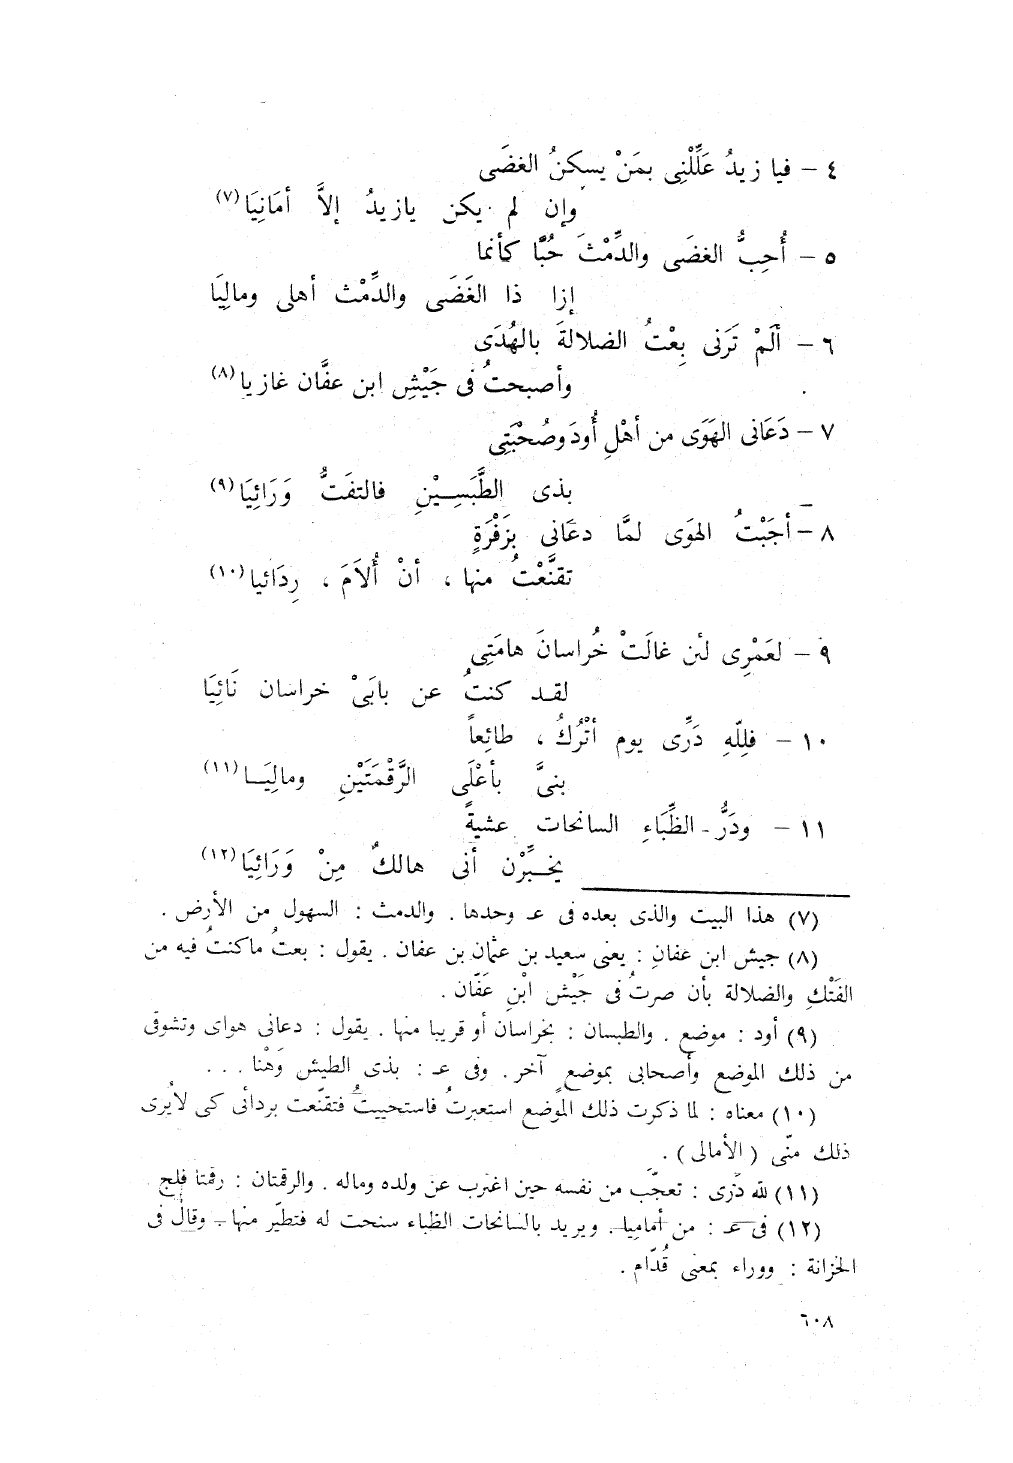 ٤ – فيا زيدُ عَلِّلْنِى بمَنْ يسكنُ الغضَى
وإن لم يكن يازيدُ إلاَّ أمَانِيَا (٧)
٥ – أُحِبُّ الغضَى والدِّمْثَ حُبًّا كأنما
إزا ذا الغَضَى والدِّمْث أهلى ومالِيَا
٦ – ألَمْ تَرَنى بِعْتُ الضلالةَ بالهُدَى
وأصبحتُ فى جَيْشِ ابن عفَّان غازيا (٨)
٧ – دَعَانى الهَوَى من أهْلِ أُودَ وصُحْبَتِى
بذى الطَّبَسِيْنِ فالتفَتُّ وَرَائِيَا (٩)
٨ – أجَبْتُ الهوَى لمَّا دعَانى بزَفْرَةٍ
تقنَّعْتُ منها ، أنْ أُلاَمَ ، رِدَائيا (١٠)
٩ – لعَمْرِى لئن غالَتْ خُراسانَ هامَتِى
لقد كنتُ عن بابَىْ خراسان نَائِيَا
١٠ – فلِلّهِ دَرِّى يوم أتْرُكُ ، طائِعاً
بنىَّ بأعْلَى الرَّقْمَتَيْنِ ومالِيَا (١١)
١١ – ودَرُّ الظِّبَاءِ السانحات عشيةً
يخبِّرْن أنى هالكٌ مِنْ وَرَائِيَا (١٢)
(٧) هذا البيت والذى بعده فى عـ وحدها . والدمث : السهول من الأرض .
(٨) جيش ابن عفان : يعنى سعيد بن عثمان بن عفان . يقول : بعتُ ماكنتُ فيه من
الفَتْكِ والضلالة بأن صرتُ فى جَيْش ابْنِ عَفّان .
(٩) أود : موضع . والطبسان : بخراسان أو قريبا منها . يقول : دعانى هواى وتشوقى
من ذلك الموضع وأصحابى بموضعٍ آخر . وفى عـ : بذى الطيش وَهْنا . . .
(١٠) معناه : لما ذكرت ذلك الموضع استعبرتُ فاستحييتُ فتقنّعت بردائى كى لايُرى
ذلك منّى ( الأمالى ) .
(١١) لله دَرى : تعجّب من نفسه حين اغترب عن ولده وماله . والرقمتان : رقمتا فلج
(١٢) فى عـ : من أماميا . ويريد بالسانحات الظباء سنحت له فتطيّر منها . وقال فى
الخزانة : ووراء بمعنى قُدّام .
٦٠٨